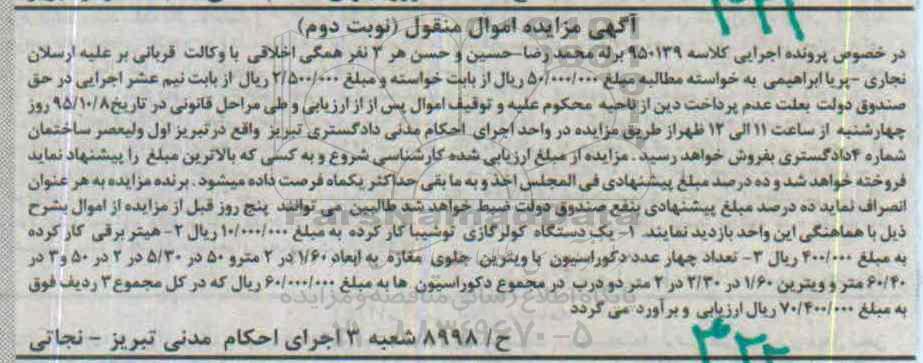 آگهی مزایده اموال منقول (نوبت دوم)
در خصوص پرونده اجرایی کلاسه ۹۵۰۱۳۹ برله محمد رضا-حسین و حسن هر ۳ نفر همگی اخلاقی با وکالت قربانی بر علیه ارسلان
نجاری -پریا ابراهیمی به خواسته مطالبه مبلغ ۵۰/۰۰۰/۰۰۰ ریال از بابت خواسته و مبلغ ۲/۵۰۰/۰۰۰ ریال از بابت نیم عشر اجرایی در حق
صندوق دولت بعلت عدم پرداخت دین از ناحیه محکوم علیه و توقیف اموال پس از از ارزیابی و طی مراحل قانونی در تاریخ ۹۵/۱۰/۸ روز
چهارشنبه از ساعت ۱۱ الی ۱۲ ظهراز طریق مزایده در واحد اجرای احکام مدنی دادگستری تبریز واقع درتبریز اول ولیعصر ساختمان
شماره ۴دادگستری بفروش خواهد رسید . مزایده از مبلغ ارزیابی شده کارشناسی شروع و به کسی که بالاترین مبلغ را پیشنهاد نماید
فروخته خواهد شد و ده درصد مبلغ پیشنهادی فی المجلس اخذ و به ما بقی حداکثر یکماه فرصت داده میشود . برنده مزایده به هر عنوان
انصراف نماید ده درصد مبلغ پیشنهادی بنفع صندوق دولت ضبط خواهد شد طالبین می توانند پنج روز قبل از مزایده از اموال بشرح
ذیل با هماهنگی این واحد بازدید نمایند. ۱- یک دستگاه کولرگازی توشیبا کار کرده به مبلغ ۱۰/۰۰۰/۰۰۰ ریال ۲- هیتر برقی کار کرده
به مبلغ ۴۰۰/۰۰۰ ریال ۳- تعداد چهار عدد دکوراسیون با ویترین جلوی مغازه به ابعاد ۱/۶۰ در ۲ مترو ۵۰ در ۵/۳۰ در ۲ در ۵۰ و۳ در
۶۰/۴۰ متر و ویترین ۱/۶۰ در ۲/۳۰ در ۲ متر دو درب در مجموع دکوراسیون ها به مبلغ ۶۰/۰۰۰/۰۰۰ ریال که در کل مجموع ۳ ردیف فوق
به مبلغ ۷۰/۴۰۰/۰۰۰ ریال ارزیابی و برآورد می گردد
ح/ ۸۹۹۸ شعبه ۱۳اجرای احکام مدنی تبریز - نجاتی